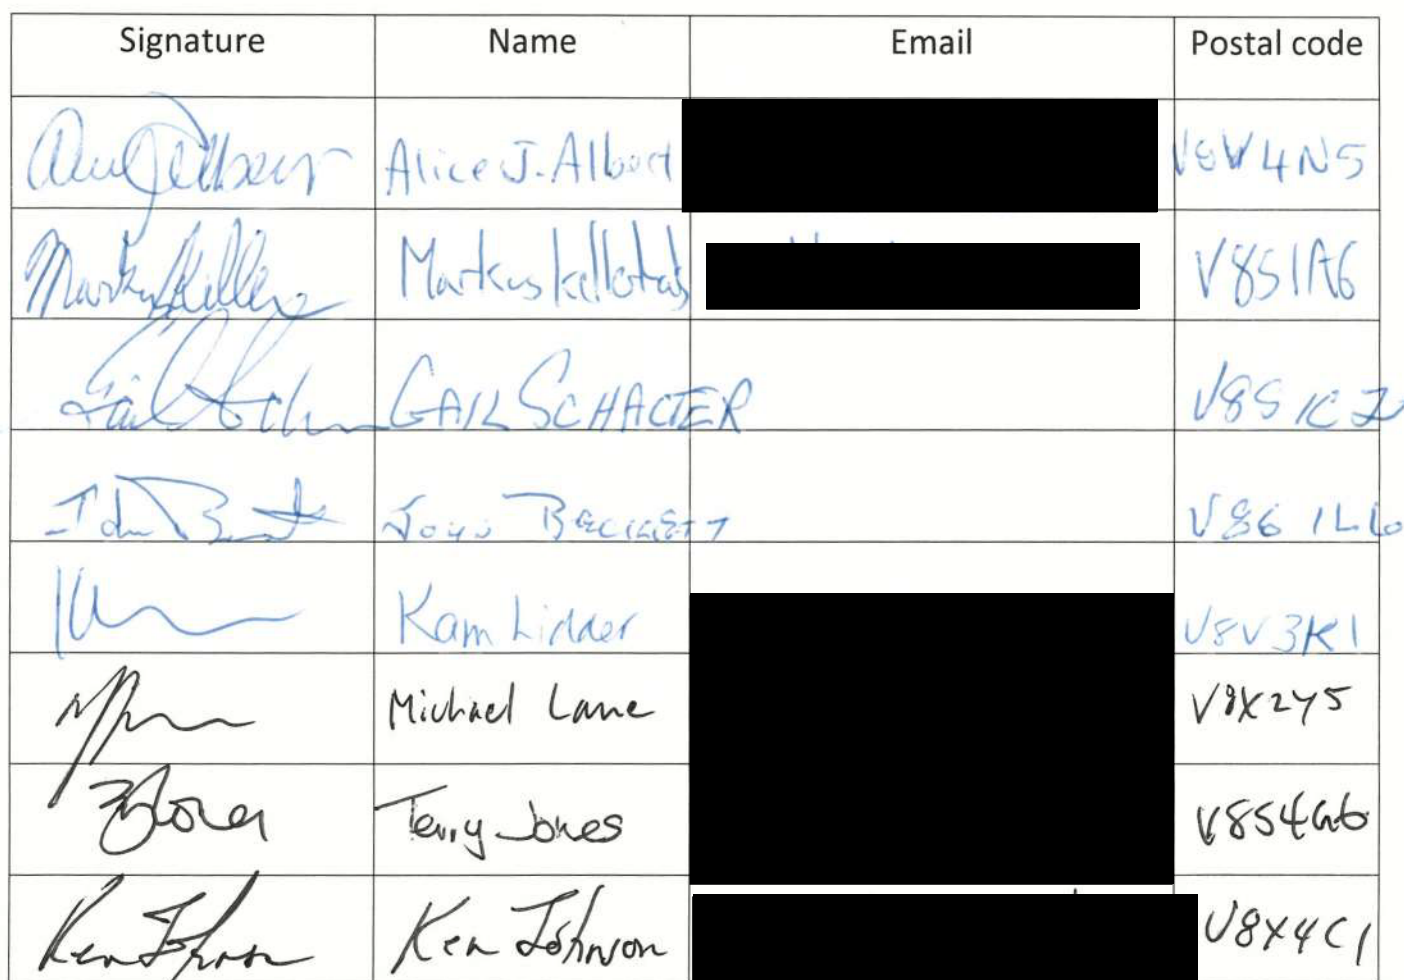 Signature Name Email Postal code
Alice J. Albert V8W4N5
Markus V8S1A6
GAIL SCHACTER V8S 1C2
JOHN BECKETT V86 1L6
Kam Lidder V8V3K1
Michael Lane V8X2Y5
Terry Jones V8S4G6
Ken Johnson Ken Johnson V8X4C1